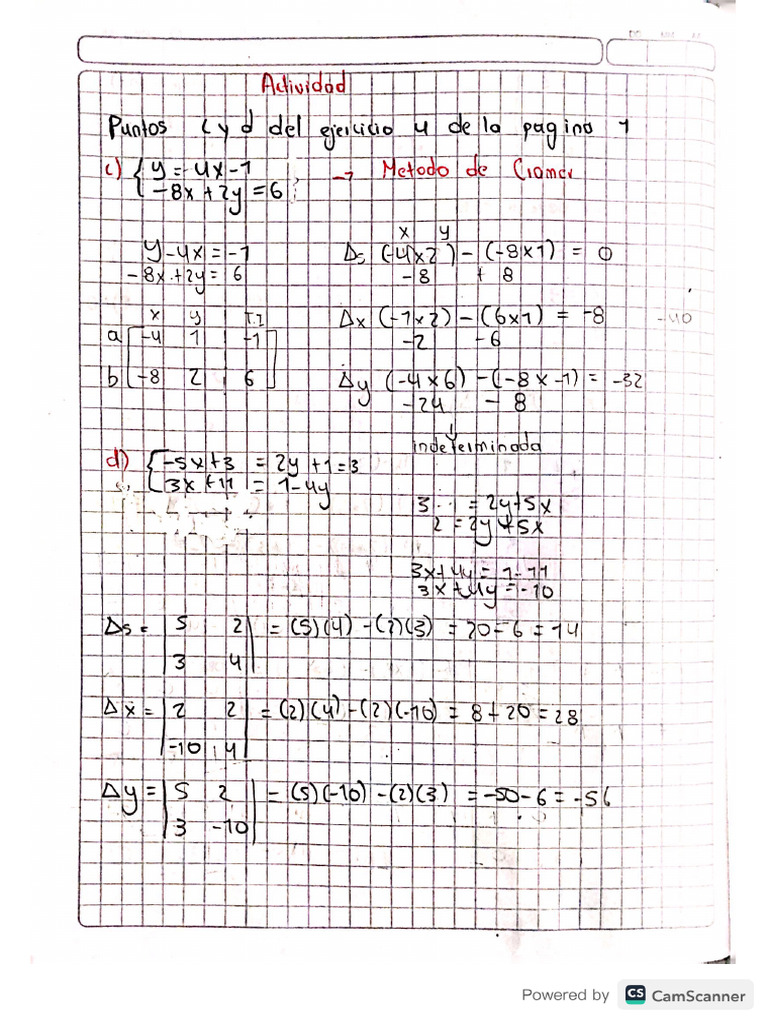 Actividad
Puntos c y d del ejercicio 4 de la pagina 1
c) { y = 4x - 1
-8x + 2y = 6
→ Metodo de Cramer
y - 4x = -1
-8x + 2y = 6
x y T.I
a -4 1 -1
b -8 2 6
x y
Δs (-4x2) - (-8x1) = 0
-8 + 8
Δx (-1x2) - (6x1) = -8
-2 - 6
-40
Δy (-4x6) - (-8x-1) = -32
-24 - 8
↓
indeterminada
d) { -5x + 3 = 2y + 1 = 3
3x + 11 = 1 - 4y
3 = 2y + 5x
2 = 2y + 5x
3x + 4y = 1 - 11
3x + 4y = -10
Δs = | 5 2 | = (5)(4) - (2)(3) = 20 - 6 = 14
3 4
Δx = | 2 2 | = (2)(4) - (2)(-10) = 8 + 20 = 28
-10 4
Δy = | 5 2 | = (5)(-10) - (2)(3) = -50 - 6 = -56
3 -10
Powered by CS CamScanner